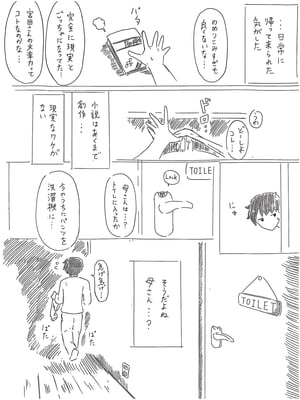 …日常に
帰って来られた
気がした
のめりこみすぎても
良くないな…
パタ
完全に現実と
ごっちゃになってた。
宮田さんの文章力って
コトなのかな…
うわ
どーしよ
コレ…
ドロ
小説はあくまで
創作…
現実なワケが
ない
にゅ
TOILE
Lock
母さんは…?
トイレに入ったか
今のうちにパンツを
洗濯機に…
TOILET
そうだよね
母さん…?
急げ急げ…
ぱた
ぱた